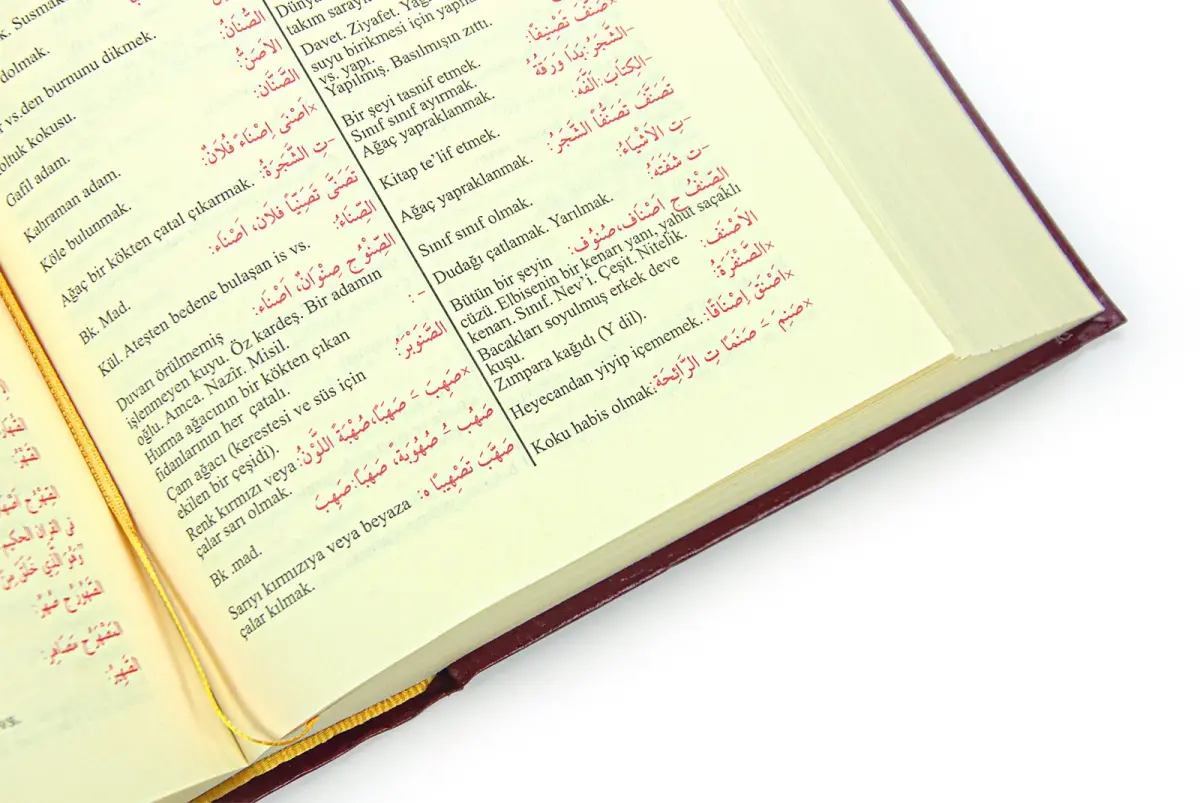 takım saraylar
Davet. Ziyafet.
suyu birikmesi için
vs. yapı.
Yapılmış. Basılmışın zıttı.
×صَنَّفَ تَصْنِيفًا:
Bir şeyi tasnif etmek.
Sınıf sınıf ayırmak.
–الشَّجَرُ: بَدَا وَرَقُهُ
Ağaç yapraklanmak.
–الكِتَابَ: أَلَّفَهُ
Kitap te’lif etmek.
تَصَنَّفَ تَصَنُّفًا الشَّجَرُ:
Ağaç yapraklanmak.
–تِ الأَشْيَاءُ:
Sınıf sınıf olmak.
–ت شَفَتُهُ:
Dudağı çatlamak. Yarılmak.
الصِّنْفُ ج اَصْنَاف،صُنُوف:
Bütün bir şeyin
cüzü. Elbisenin bir kenarı yanı, yahut saçaklı
kenarı. Sınıf. Nev’i. Çeşit. Nitelik.
الأَصْنَف:
Bacakları soyulmuş erkek deve
kuşu.
×الصَّنْفَرَةُ:
Zımpara kağıdı (Y dil).
×اَصْنَقَ اِصْنَاقًا:
Heyecandan yiyip içememek.
×صَنِمَ – صَنَمًا تِ الرَّائِحَة:
Koku habis olmak.
dolmak.
الصُّنَانُ:
vs.den burnunu dikmek.
koltuk kokusu.
الأَصَنُّ:
Gafil adam.
الصِّنَّان:
Kahraman adam.
×اَصْنَى اِصْنَاءً فُلاَنٌ:
Köle bulunmak.
–تِ الشَّجَرَةُ:
Ağaç bir kökten çatal çıkarmak.
تَصَنَّى تَصَنِّيًا فُلاَن، اَصْنَاء:
Bk. Mad.
الصِّنَاءُ:
Kül. Ateşten bedene bulaşan is vs.
الصِّنْوُ ج صِنْوَانٌ، اَصْنَاء:
Duvarı örülmemiş
işlenmeyen kuyu. Öz kardeş. Bir adamın
oğlu. Amca. Nazîr. Misil.
– :
Hurma ağacının bir kökten çıkan
fidanlarının her çatalı.
الصَّنَوْبَرُ:
Çam ağacı (kerestesi ve süs için
ekilen bir çeşidi).
×صَهِبَ – صَهَبًا،صُهْبَةً اللَّوْنُ:
Renk kırmızı veya
çalar sarı olmak.
صَهُب – صُهُوبَةً، صَهَبًا: صَهِبَ
Bk .mad.
صَهَّبَ تَصْهِيبًا ه:
Sarıyı kırmızıya veya beyaza
çalar kılmak.